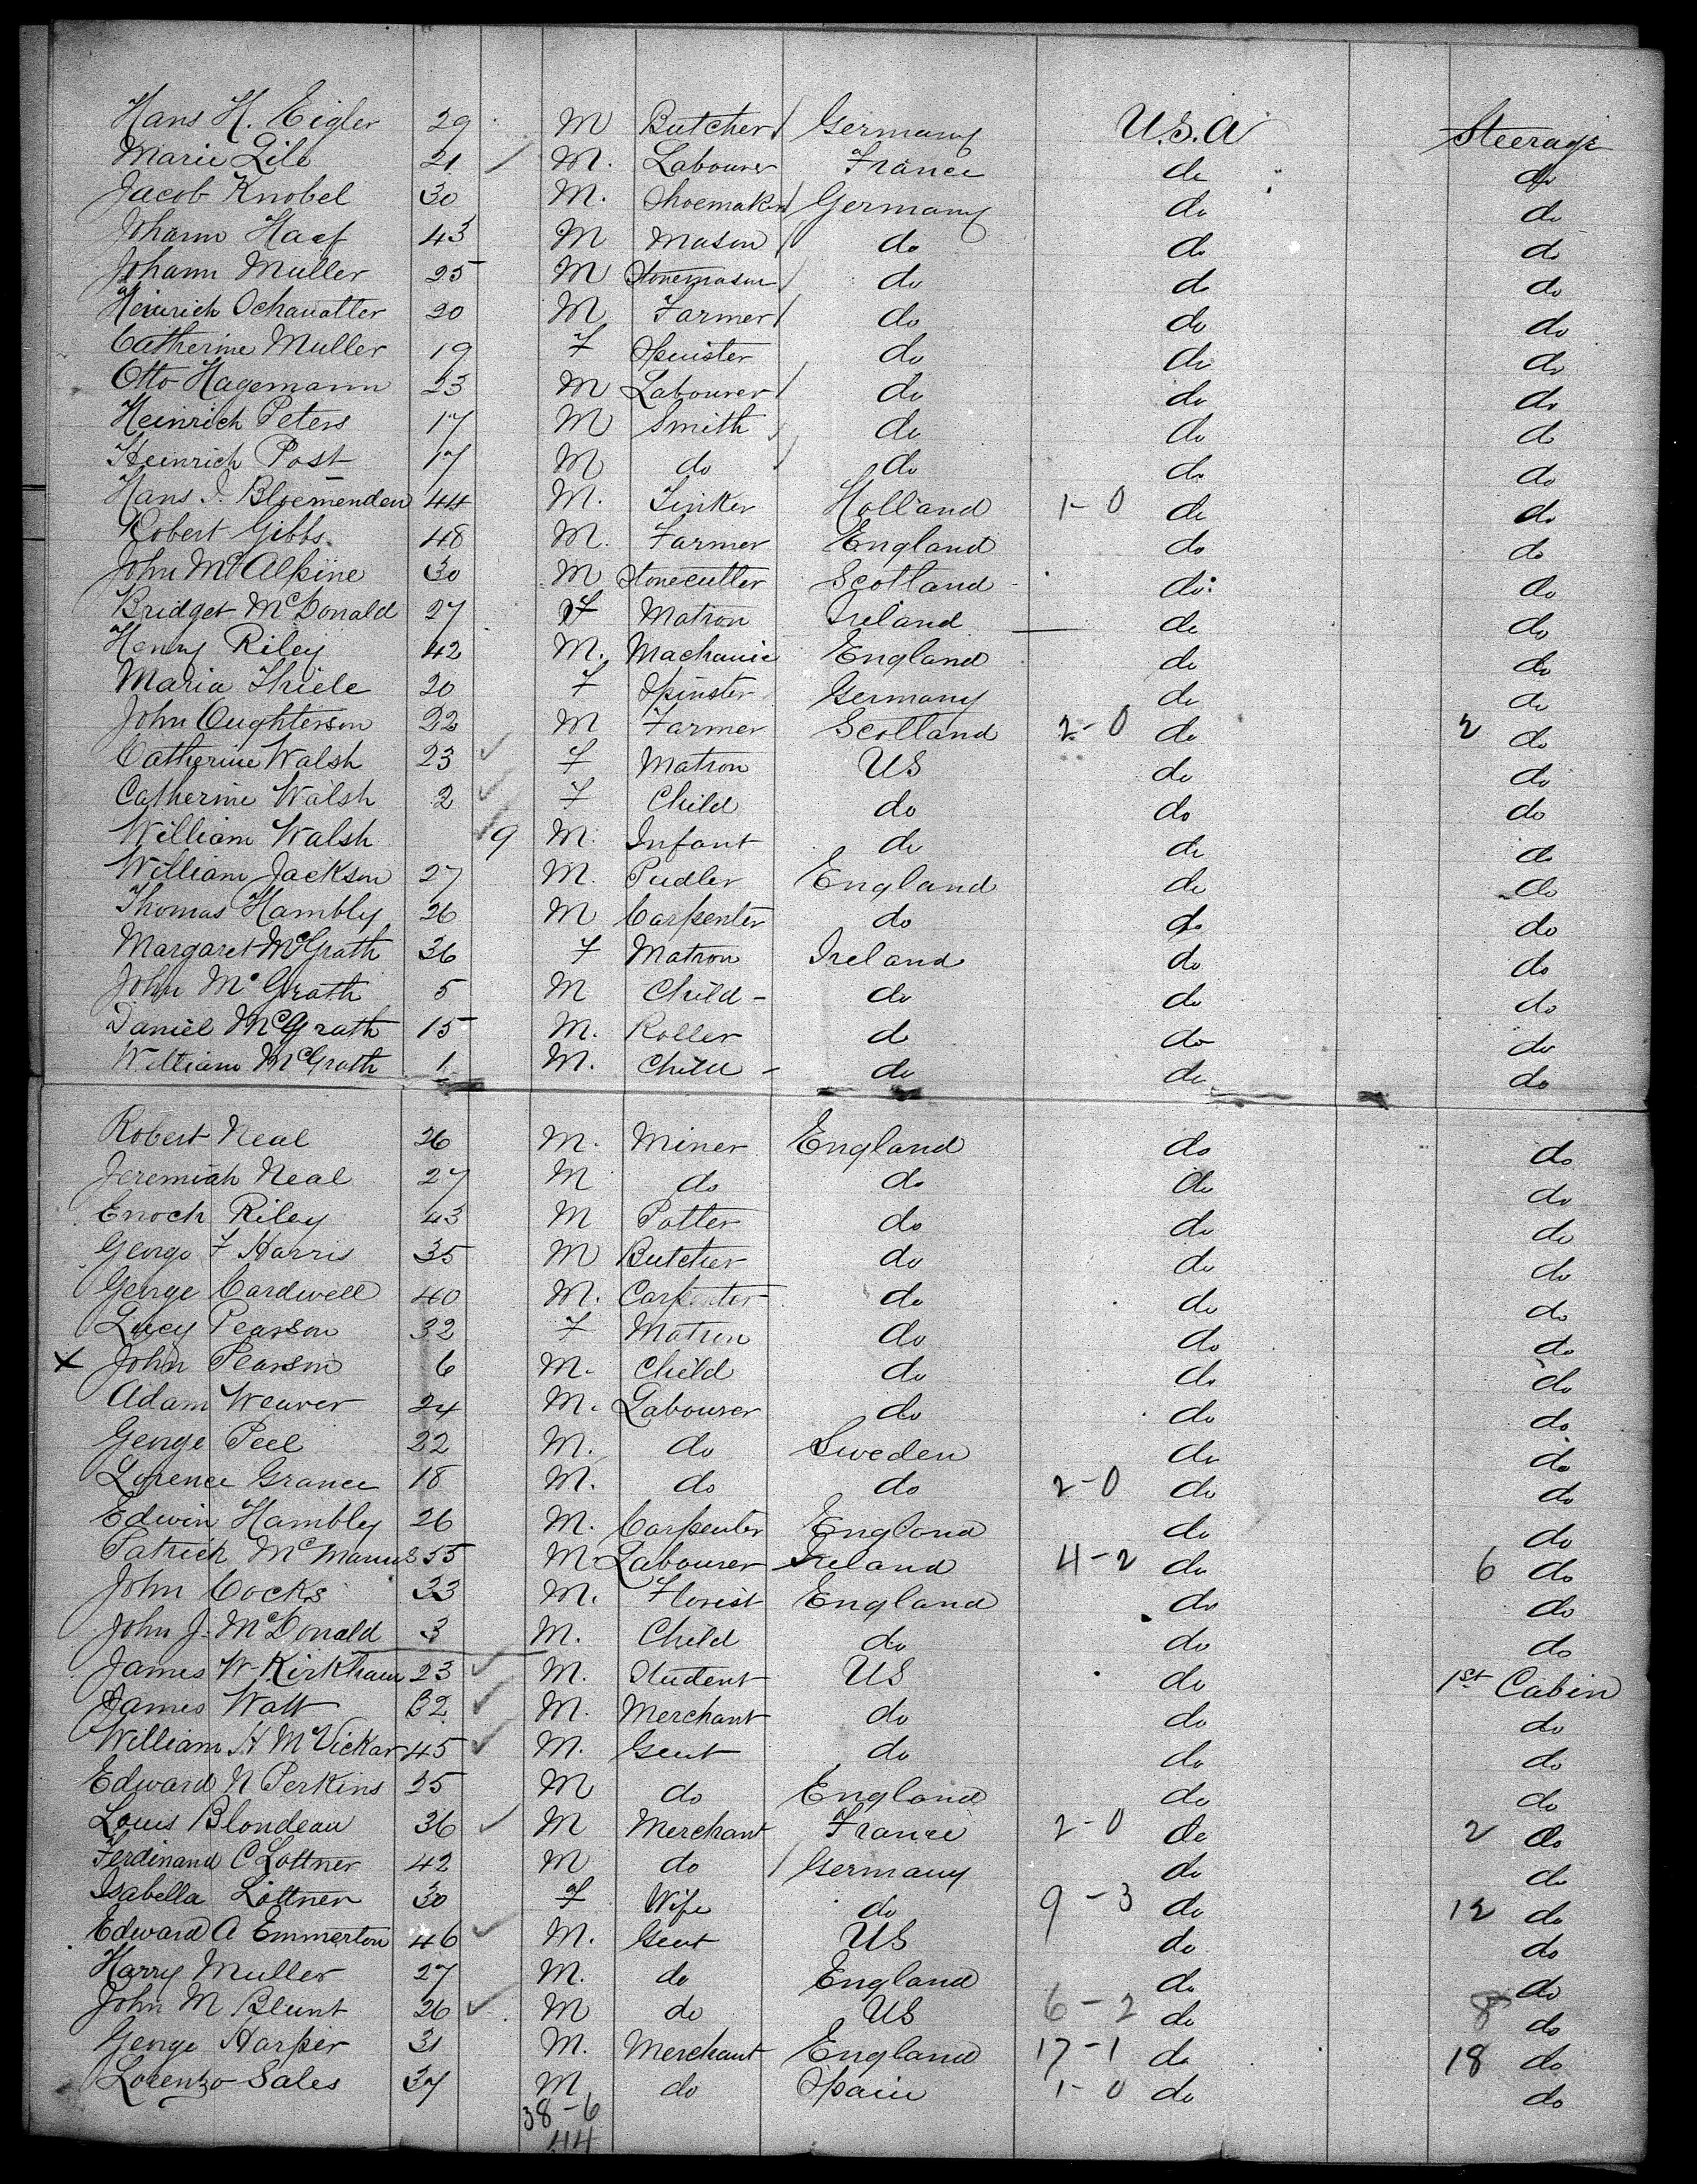 Hans H. Eigler 29 M Butcher Germany U.S.A Steerage
Marie 21 M. Labourer France do do
Jacob Knobel 30 M. Shoemaker Germany do do
Johann Haef 43 M Mason do do do
Johann Muller 25 M Stonemason do do do
Heinrich 20 M Farmer do do do
Catherine Muller 19 F Spinster do do do
Otto Hagemann 23 M Labourer do do do
Heinrich Peters 17 M Smith do do do
Heinrich Post 17 M do do do do
Hans J. Bloemendau 44 M. Tinker Holland 1-0 do do
Robert Gibbs. 48 M. Farmer England do do
John McAlpine 30 M Stonecutter Scotland do do
Bridget McDonald 27 F Matron Ireland do do
Henry Riley 42 M. Machanic England do do
Maria Thiele 20 F Spinster Germany do do
John Oughterson 22 M Farmer Scotland 2-0 do 2 do
Catherine Walsh 23 ✓ F Matron US do do
Catherine Walsh 2 ✓ F Child do do do
William Walsh ✓ 9 M. Infant do do do
William Jackson 27 M. Pudler England do do
Thomas Hambly 26 M Carpenter do do do
Margaret McGrath 36 F Matron Ireland do do
John McGrath 5 M Child - do do do
Daniel McGrath 15 M. Roller do do do
William McGrath 1 M. Child - do do do
Robert Neal 26 M. Miner England do do
Jeremiah Neal 27 M do do do do
Enoch Riley 43 M Potter do do do
George F Harris 35 M Butcher do do do
George Cardwell 40 M. Carpenter do do do
Lucy Pearson 32 F Matron do do do
x John Pearson 6 M. Child do do do
Adam Weaver 24 M. Labourer do do do
George Peel 22 M. do Sweden do do
Lorence Grance 18 M. do do 2-0 do do
Edwin Hambly 26 M. Carpenter England do do
Patrick McManus 55 M. Labourer Ireland 4-2 do 6 do
John Cocks 33 M. Florist England do do
John J. McDonald 3 M. Child do do do
James W Kirkham 23 ✓ M. Student US do 1st Cabin
James Watt 32 ✓ M. Merchant do do do
William H McVickar 45 ✓ M. Gent do do do
Edward N Perkins 25 M do England do do
Louis Blondeau 36 ✓ M Merchant France 2-0 do 2 do
Ferdinand C Lottner 42 M do Germany do do
Isabella Lottner 30 F Wife do 9-3 do 12 do
Edward A Emmerton 46 ✓ M. Gent US do do
Harry Muller 27 M. do England do do
John M Blunt 26 ✓ M do US 6-2 do 8 do
George Harper 31 M. Merchant England 17-1 do 18 do
Lorenzo Sales 37 M do Spain 1-0 do do
38-6
44